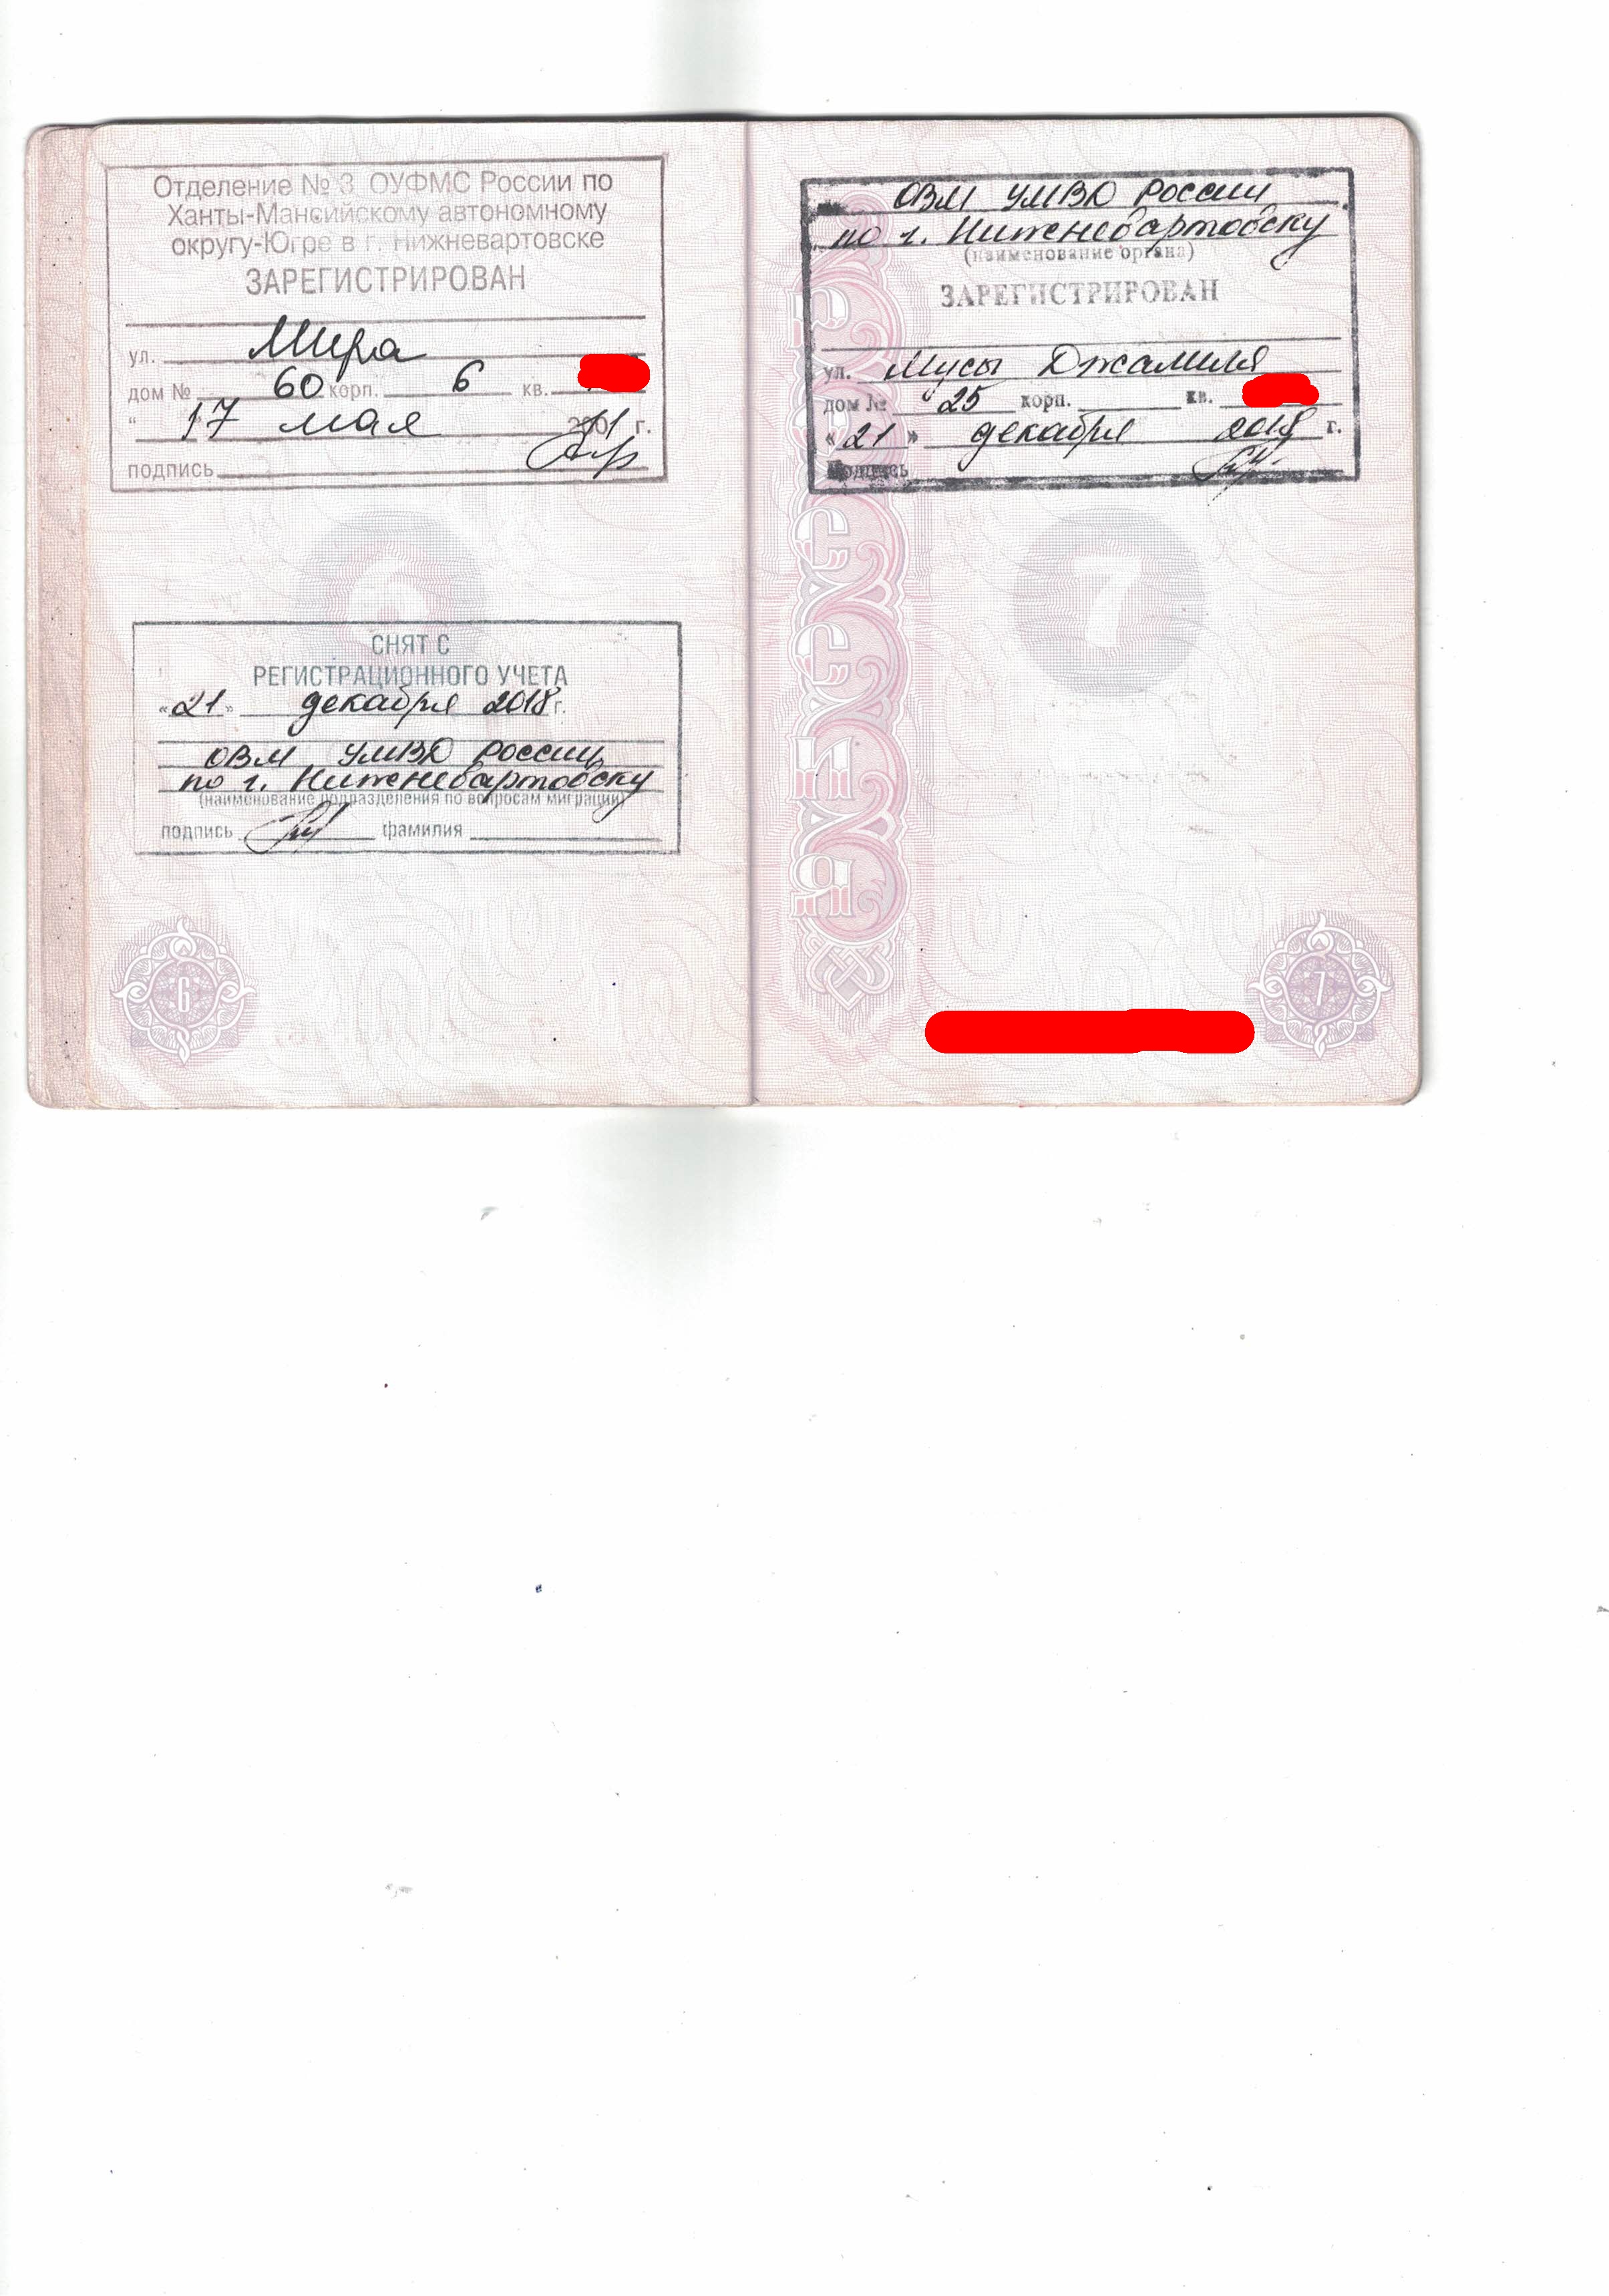 Отделение № 3 ОУФМС России по
Ханты-Мансийскому автономному
округу-Югре в г. Нижневартовске
ЗАРЕГИСТРИРОВАН
ул. Мира
дом № 60 корп. 6 кв.
" 17 мая г.
подпись
6
СНЯТ С
РЕГИСТРАЦИОННОГО УЧЕТА
«21» декабря 2018 г.
ОВМ УМВД России
по г. Нижневартовску
(наименование подразделения по вопросам миграции)
подпись фамилия
6
ОВМ УМВД России
по г. Нижневартовску
(наименование органа)
ЗАРЕГИСТРИРОВАН
ул. Мусы Джамиля
дом № 25 корп. кв.
«21» декабря 2018 г.
Подпись
7
РОССИЯ
7